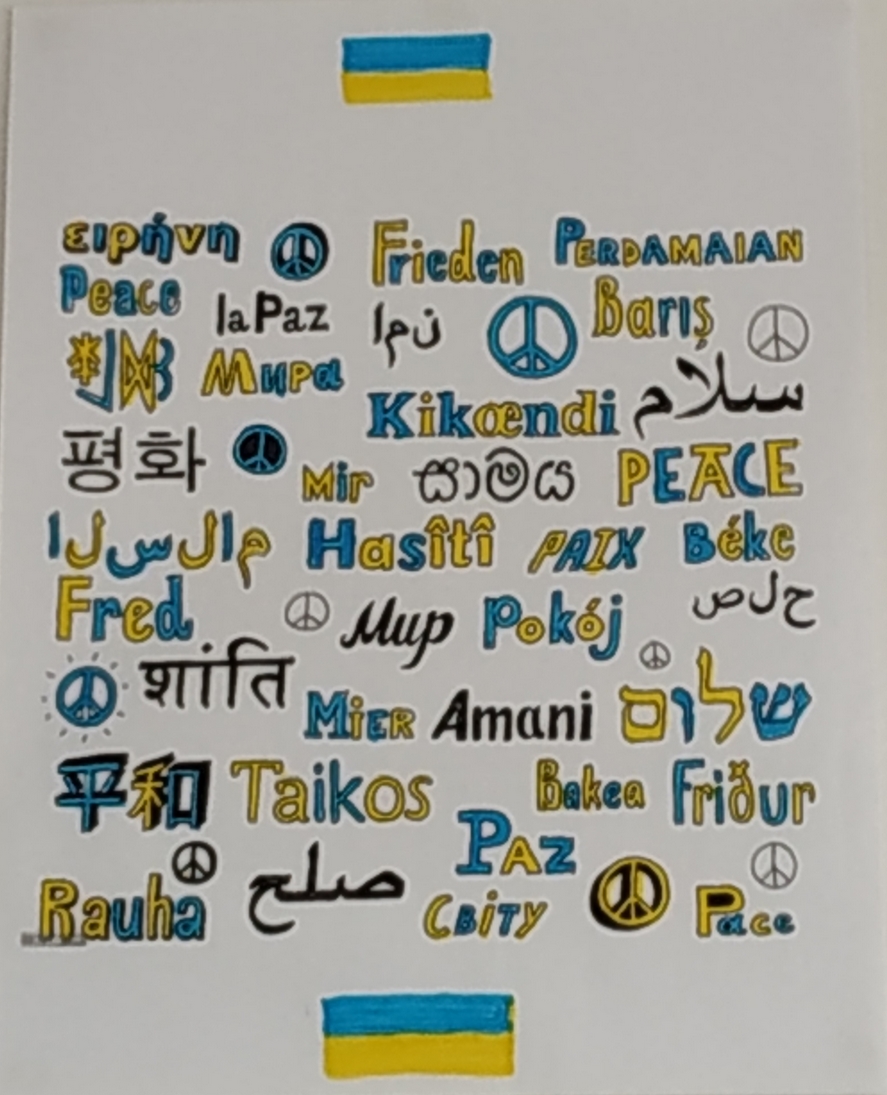 ειρήνη Frieden PERDAMAIAN
Peace la Paz ن م ا Barış
Мира
Kikœndi سلام
평화 Mir සාමය PEACE
ا ل س ل ا م Hasîtî PAIX Béke
Fred Мир Pokój ح ل ص
शांति MIER Amani שלום
平和 Taikos Bakea Friður
PAZ
Rauha صلح СВіТУ Pace